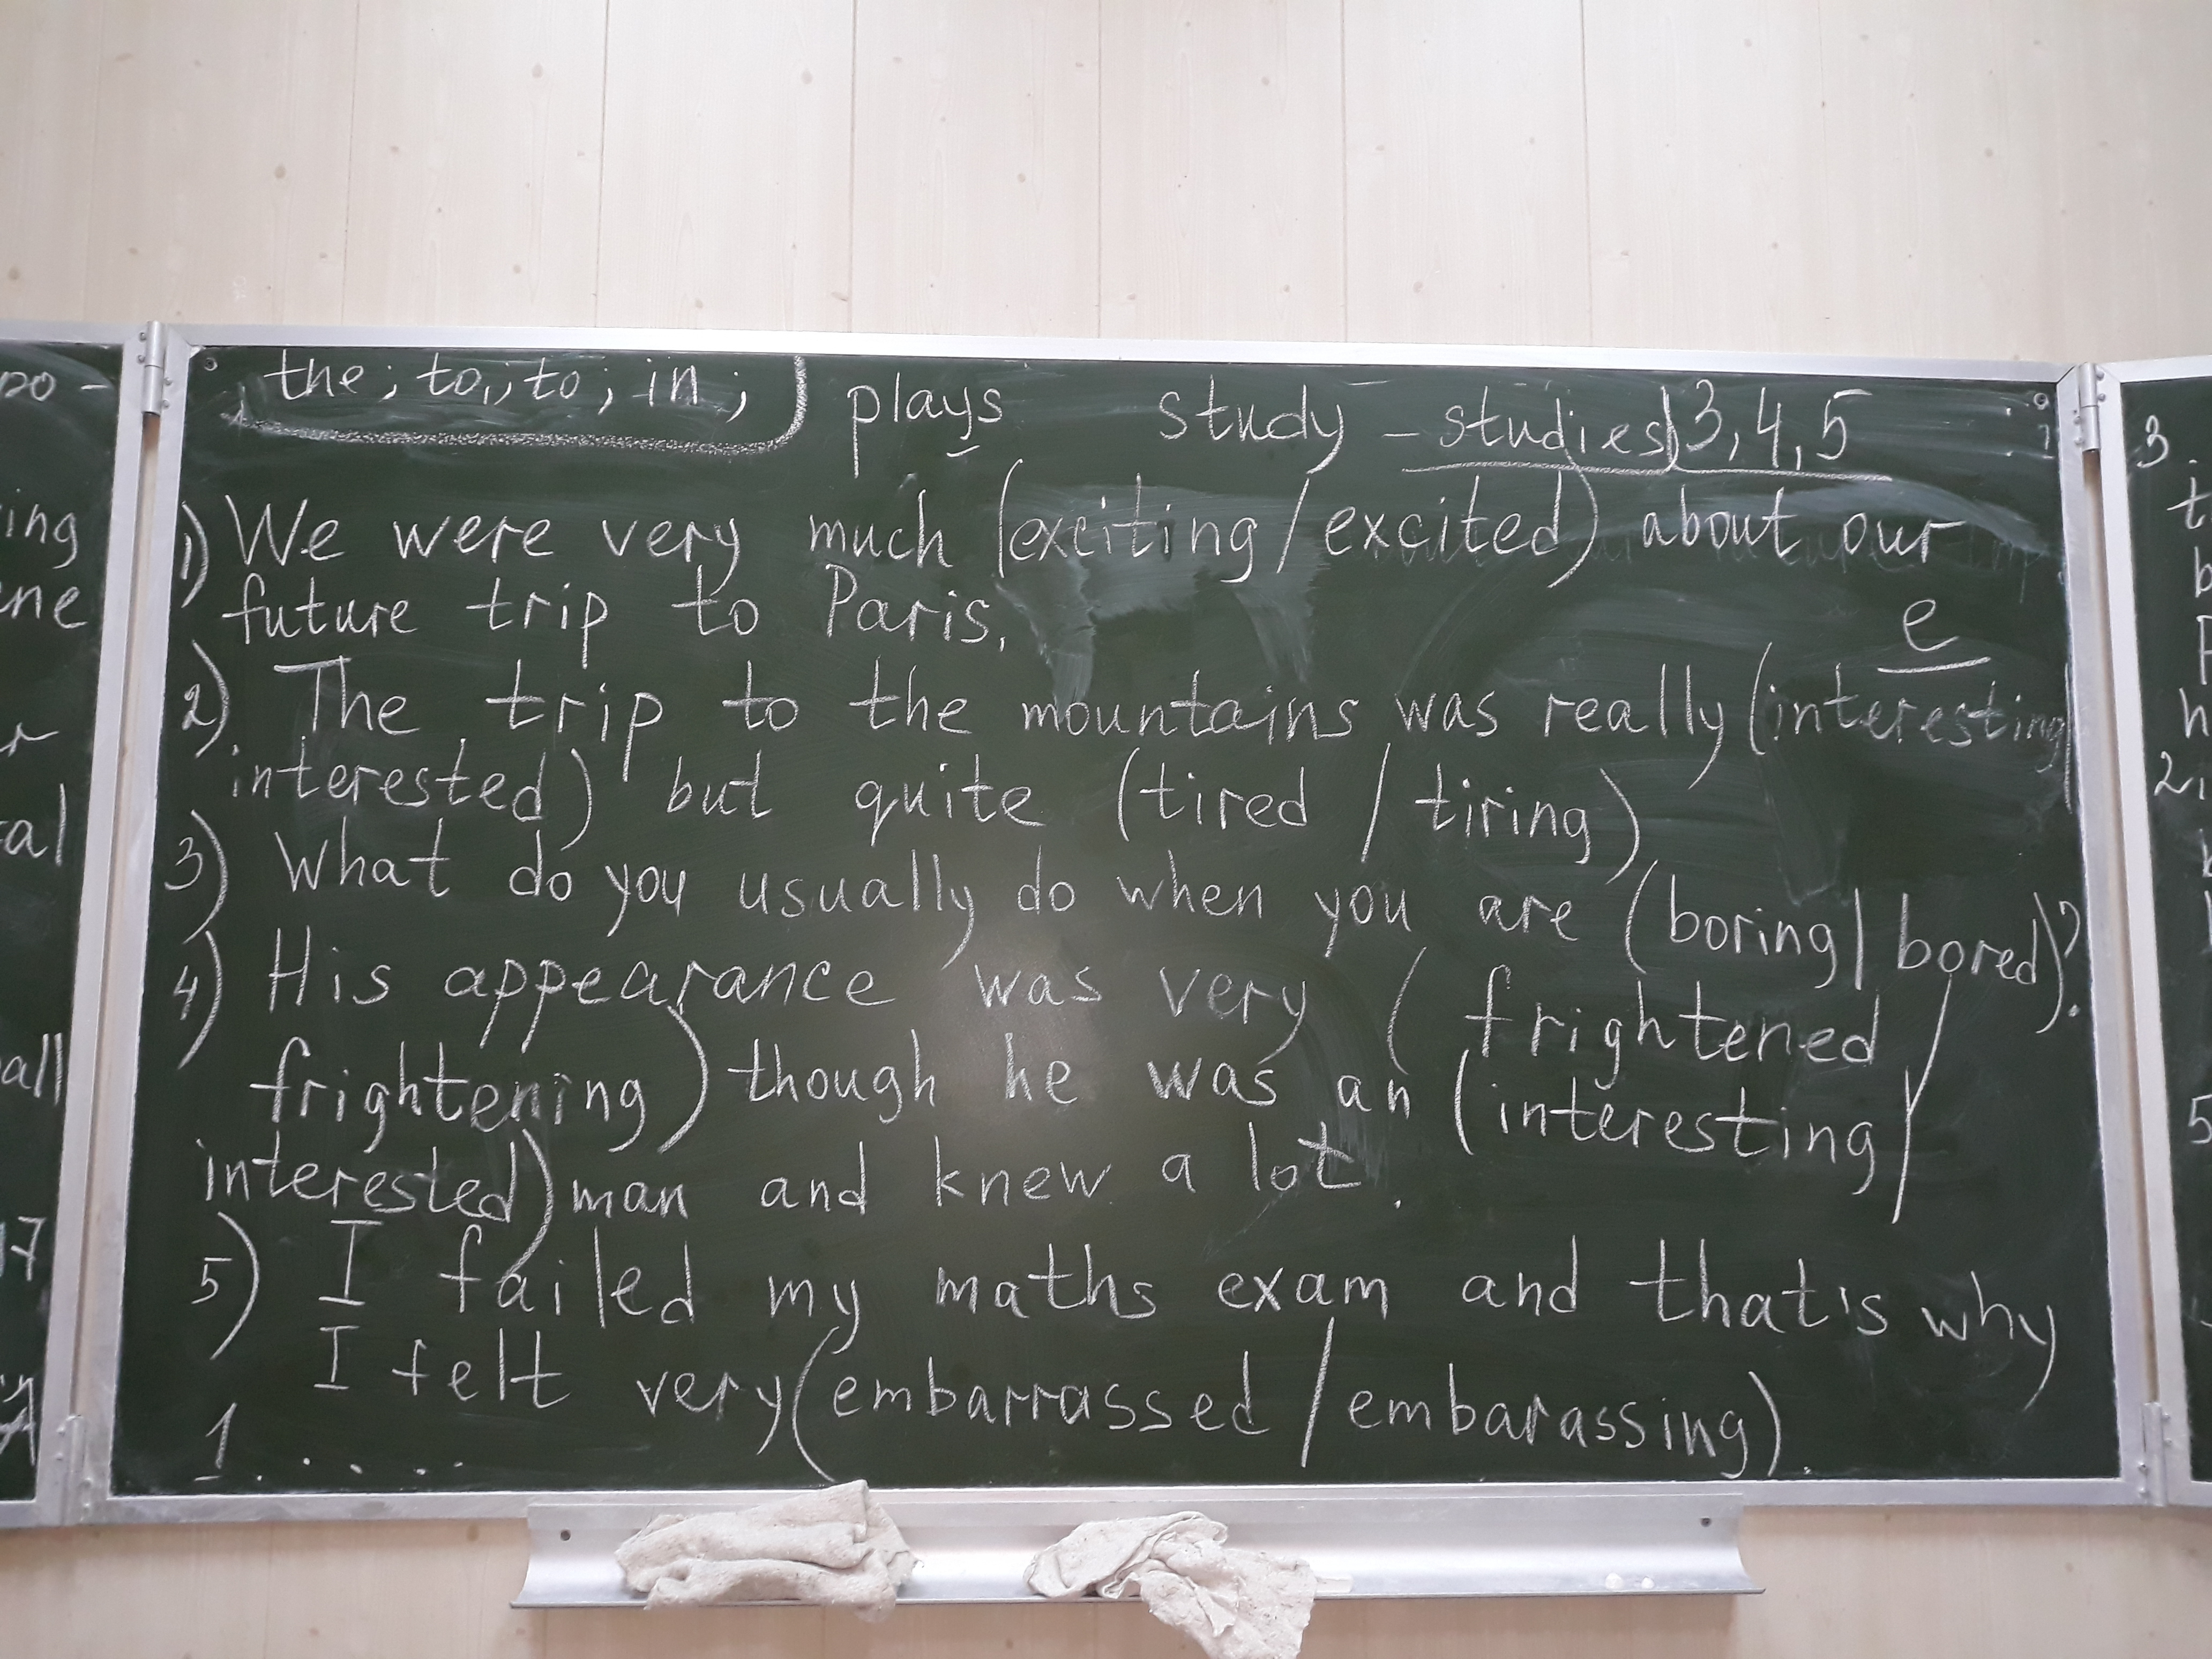 the; to, to; in;
plays
study - studies) 3, 4, 5
1) We were very much (exciting / excited) about our
future trip to Paris.
e
2) The trip to the mountains was really (interesting/
interested) but quite (tired / tiring)
3) What do you usually do when you are (boring / bored)?
4) His appearance was very (frightened /
frightening) though he was an (interesting /
interested) man and knew a lot.
5) I failed my maths exam and that's why
I felt very (embarrassed / embarassing).
1. . . . .
ing
ene
r
al
all
17
3.
t
b
h
2
5